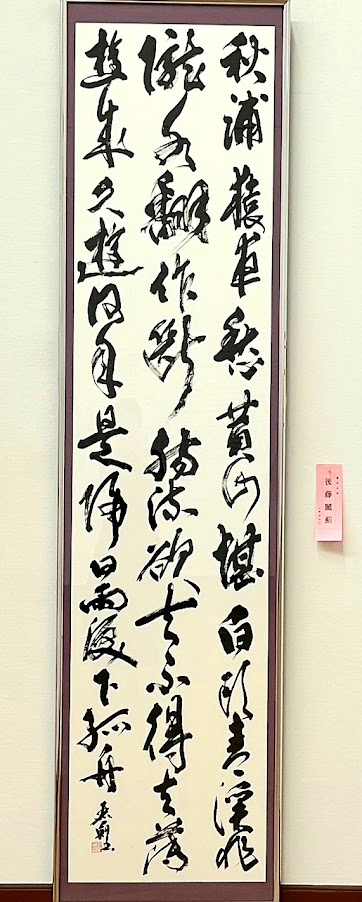 秋浦猿夜愁黄山堪白頭青溪非
隴水翻作斷腸流欲去不得去薄
遊成久遊何年是歸日雨淚下孤舟
後藤